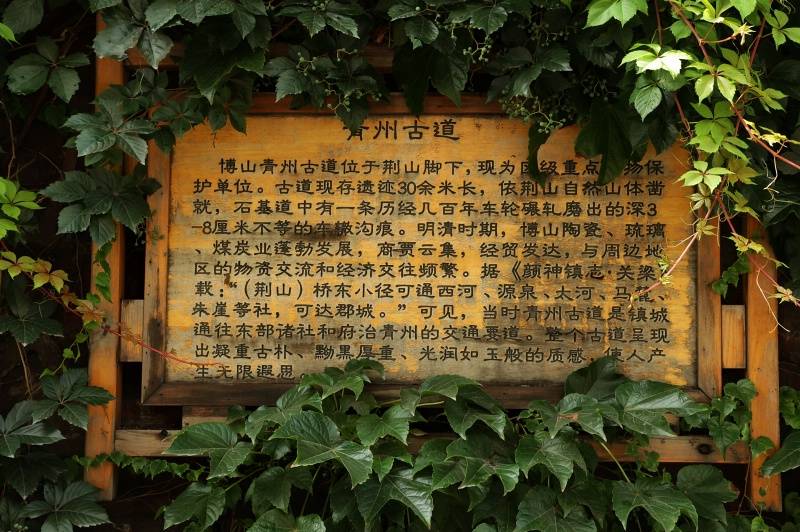 青州古道
博山青州古道位于荆山脚下，现为区级重点文物保
护单位。古道现存遗迹30余米长，依荆山自然山体凿
就，石基道中有一条历经几百年车轮碾轧磨出的深3
-8厘米不等的车辙沟痕。明清时期，博山陶瓷、琉璃
、煤炭业蓬勃发展，商贾云集，经贸发达，与周边地
区的物资交流和经济交往频繁。据《颜神镇志·关梁
载：“（荆山）桥东小径可通西河、源泉、太河、马
朱崖等社，可达郡城。”可见，当时青州古道是镇城
通往东部诸社和府治青州的交通要道。整个古道呈现
出凝重古朴、黝黑厚重、光润如玉般的质感，使人产
生无限遐思